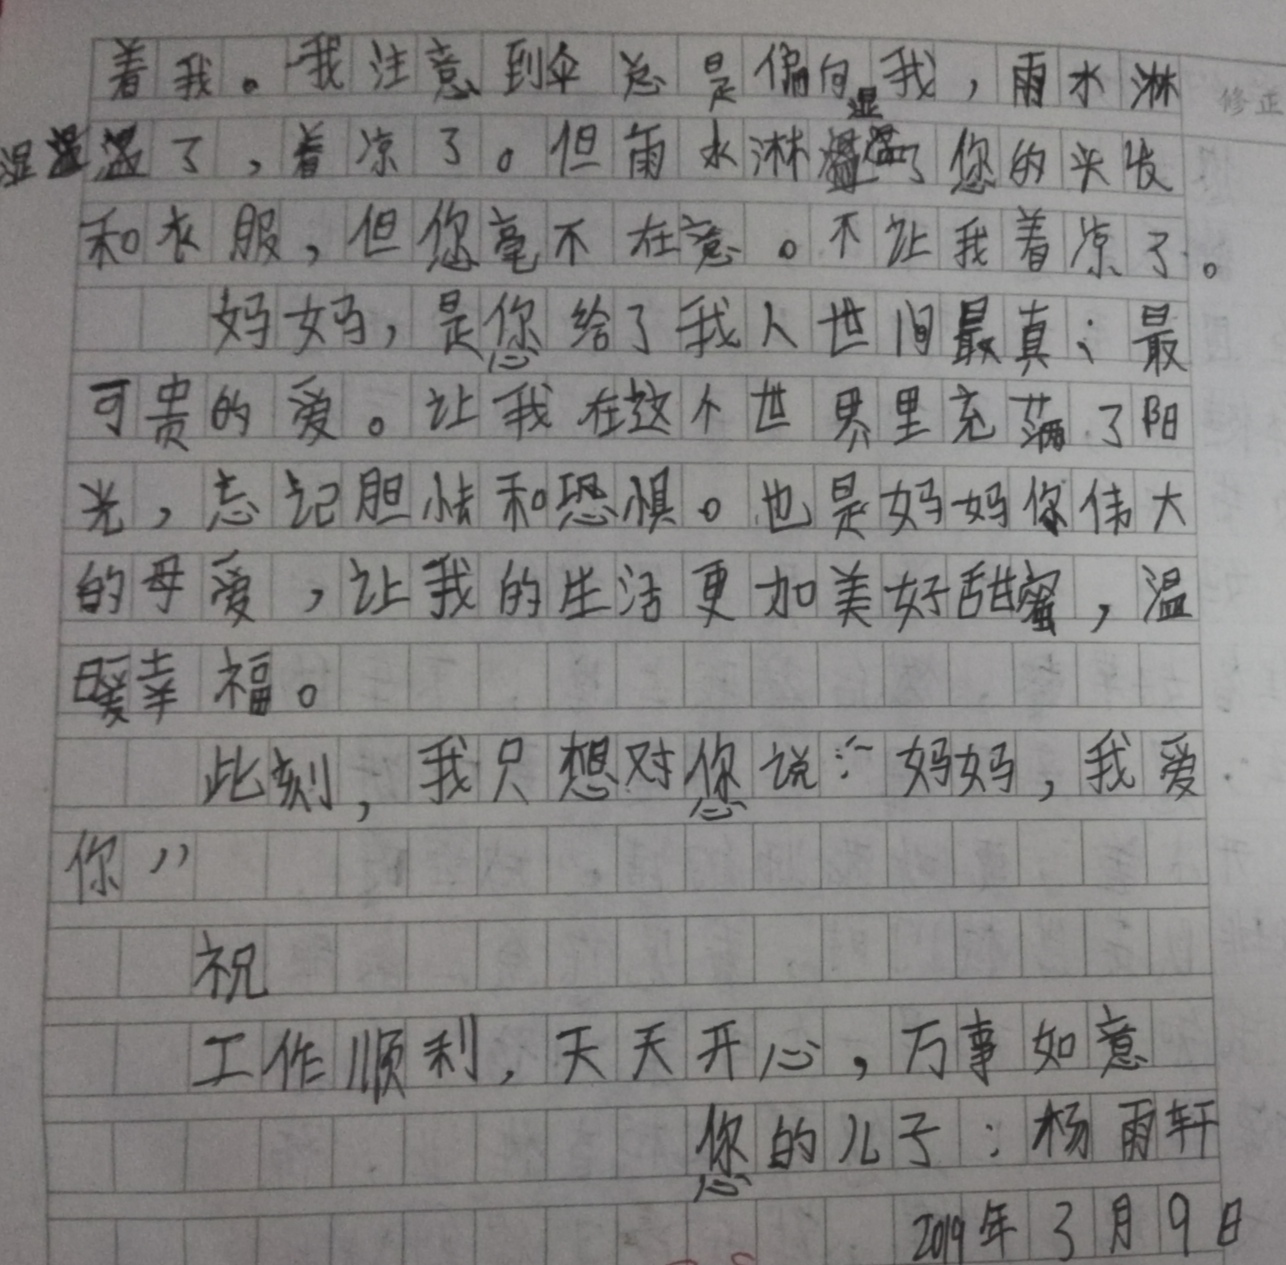 着我。我注意到伞总是偏向我，雨水淋
湿了，着凉了。但雨水淋湿了您的头发
和衣服，但您毫不在意。不让我着凉了。
妈妈，是您给了我人世间最真；最
可贵的爱。让我在这个世界里充满了阳
光，忘记胆怯和恐惧。也是妈妈你伟大
的母爱，让我的生活更加美好甜蜜，温
暖幸福。
此刻，我只想对您说：“妈妈，我爱
你”
祝
工作顺利，天天开心，万事如意
您的儿子：杨雨轩
2019年3月9日